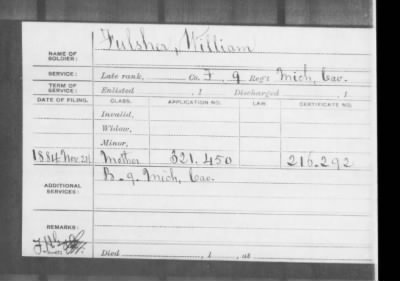 NAME OF SOLDIER: Fulsher, William
SERVICE: Late rank, Co. F. 9 Reg't Mich, Cav.
TERM OF SERVICE: Enlisted , 1 Discharged , 1
DATE OF FILING. CLASS. APPLICATION NO. LAW. CERTIFICATE NO.
Invalid,
Widow,
Minor,
1884 Nov. Mother 321.450 216.292
ADDITIONAL SERVICES: B. 9. Mich, Cav.
REMARKS:
Died , 1 , at